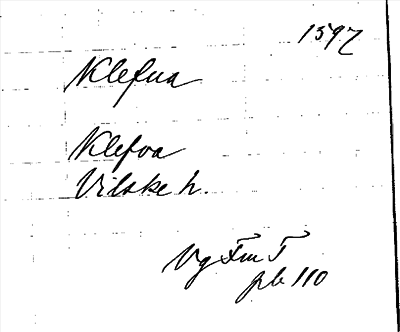 1597
Klefua
Klefva
Vilske h.
Vg Fmt T
pb 110